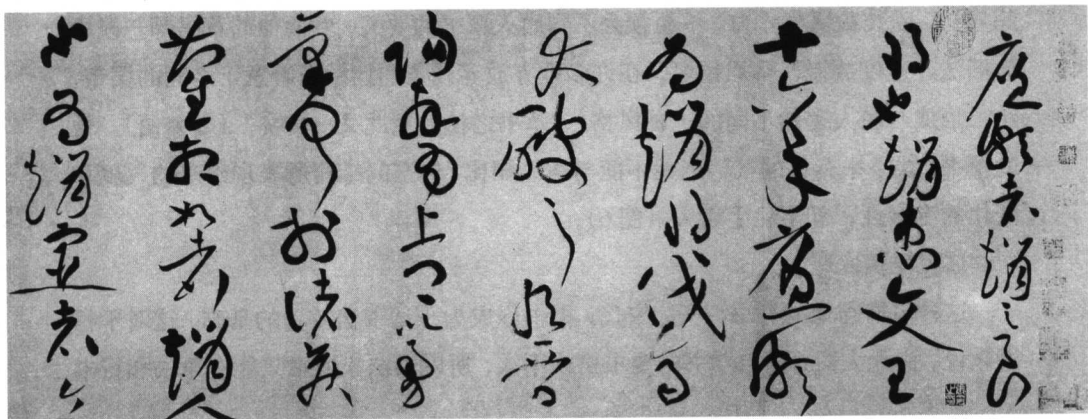 廉頗者趙之良
將也趙惠文王
十六年廉頗
為趙將伐齊
大破之取晉
陽拜為上卿以勇
氣聞於諸侯
藺相如者趙人
也為趙宦者令